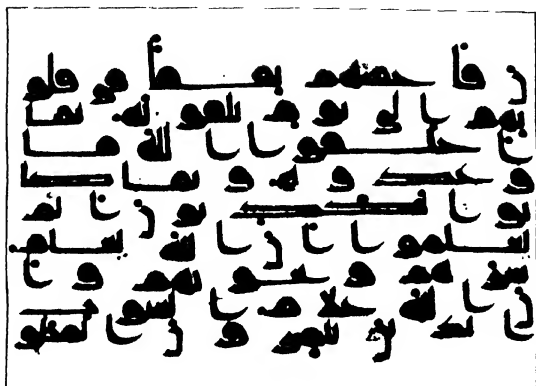 ن فاعقبهم نفقا في قلو
بهم الى يوم يلقونه بما
اخلفوا الله ما
وعدوه وبما كا
نوا يكذبون الم
يعلموا ان الله يعلم
سرهم ونجويهم وا
ن الله علم الغيوب
الذين يلمزون المطو